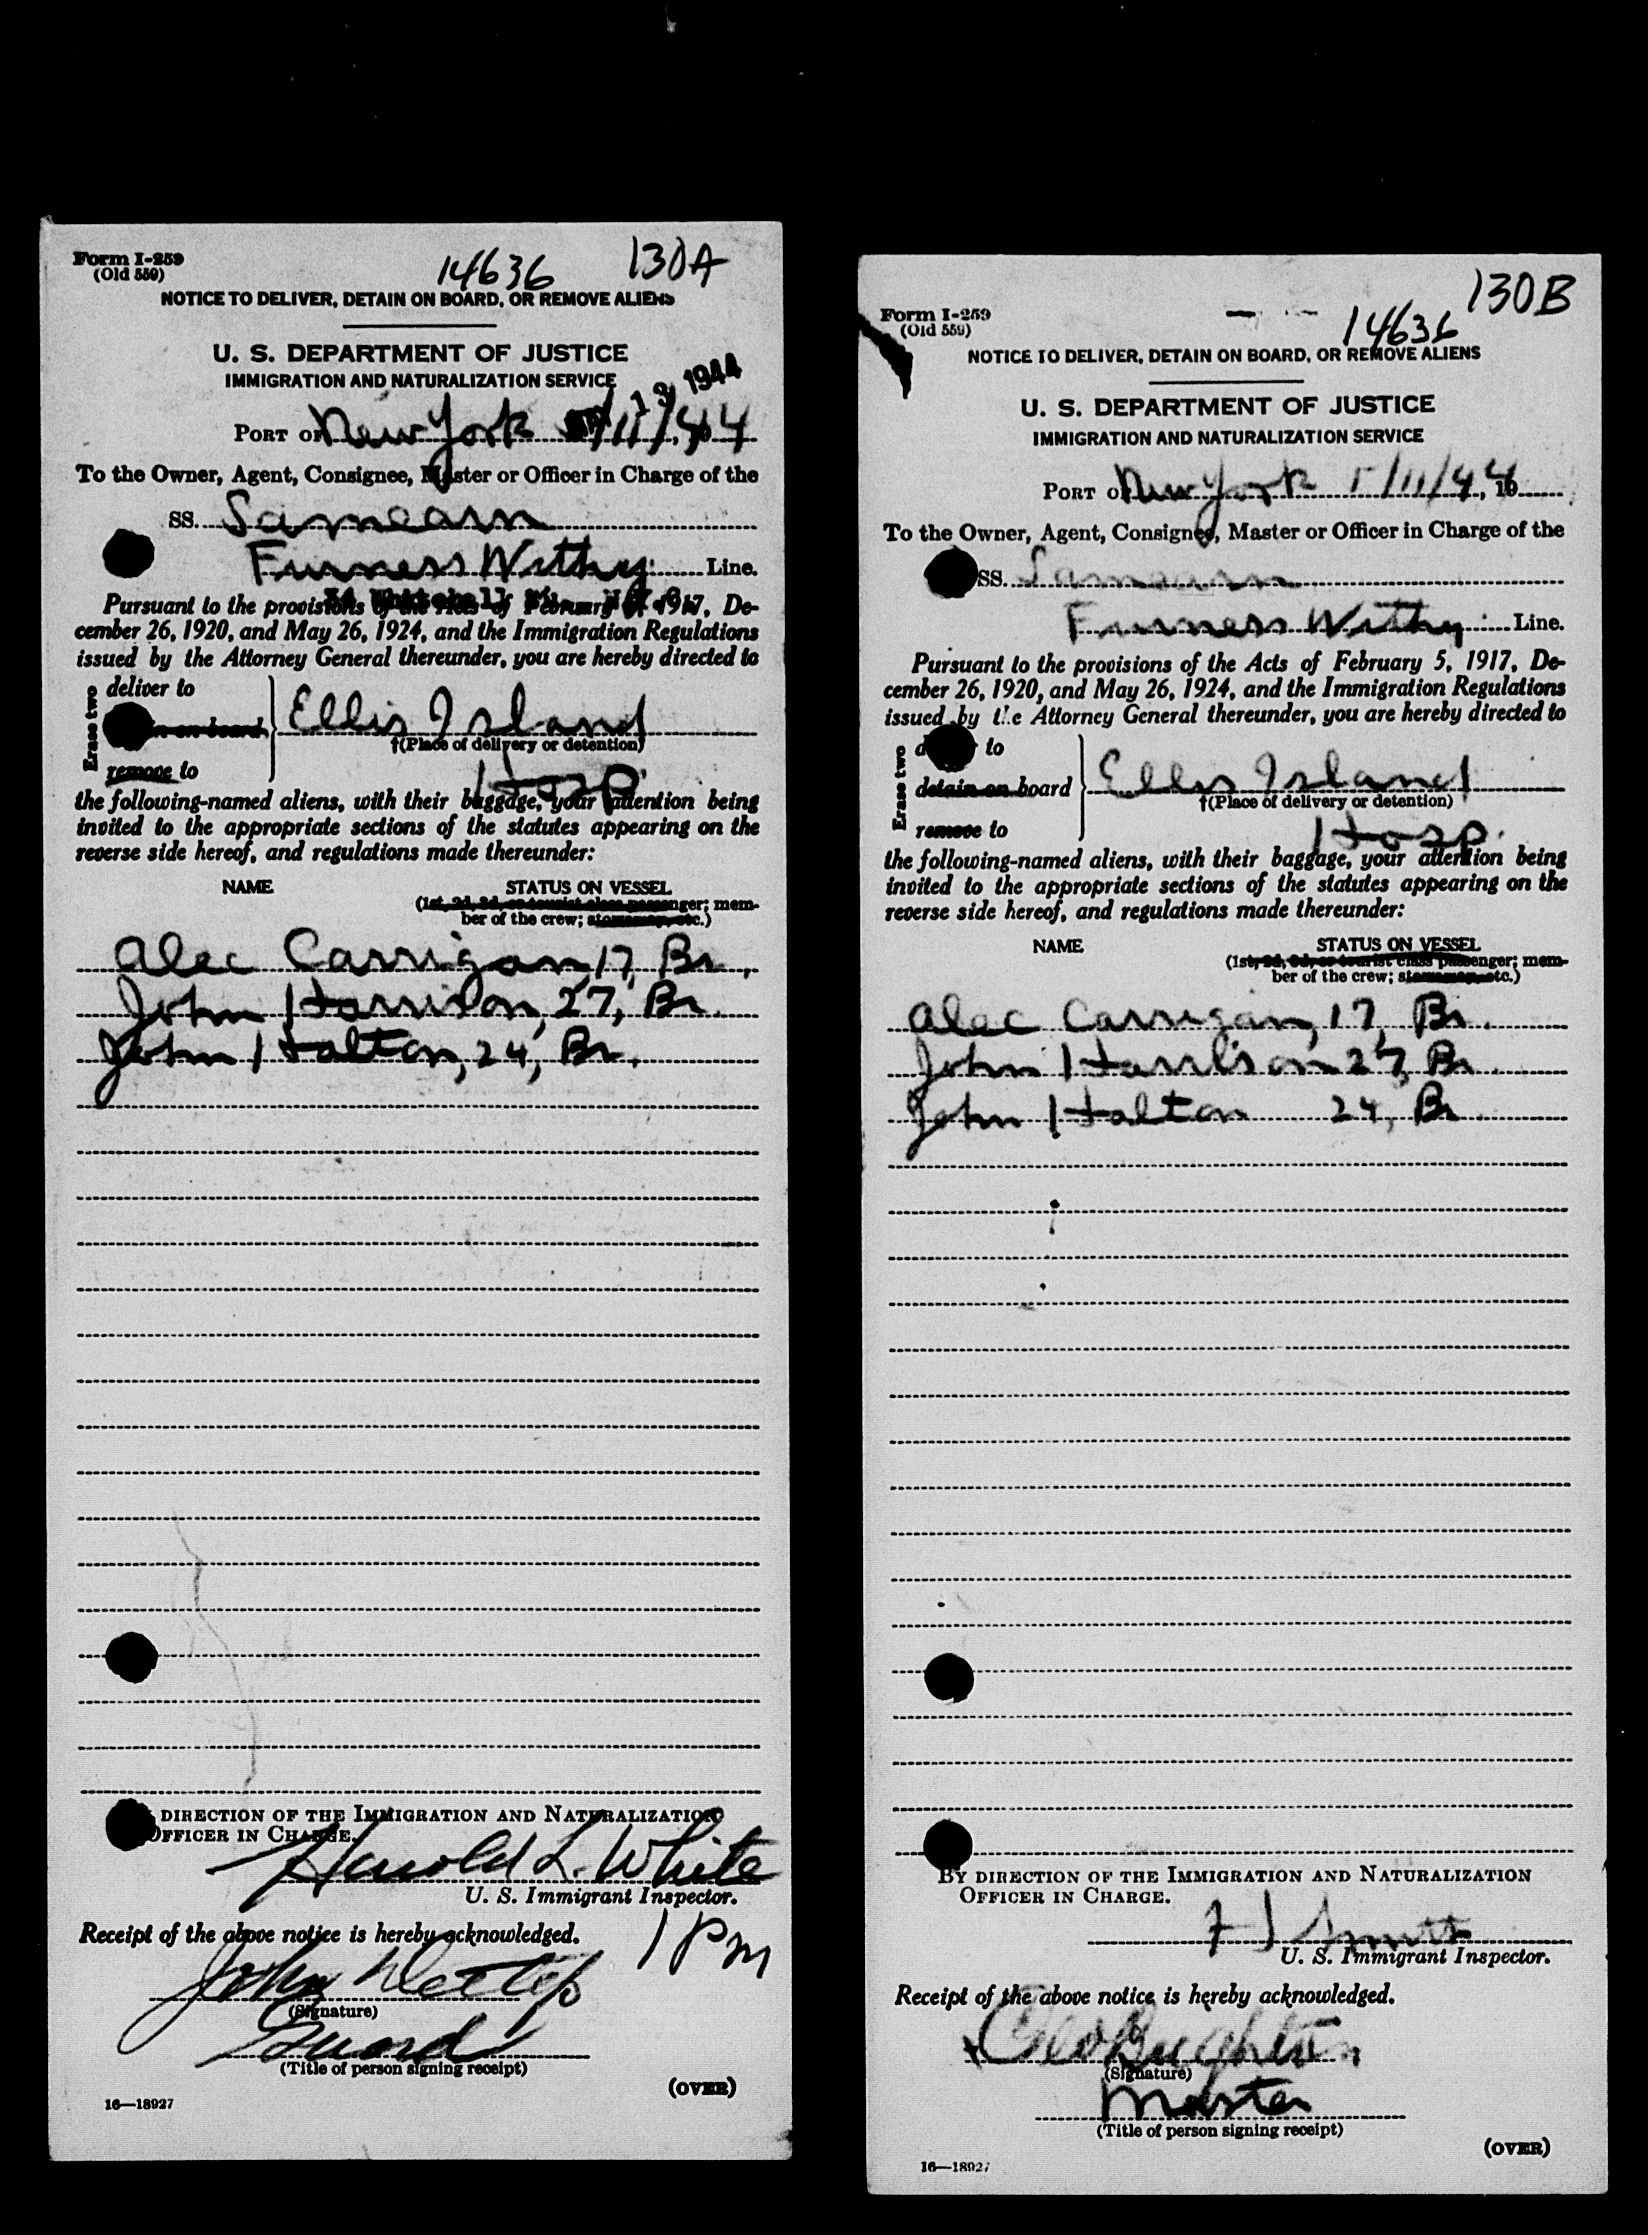 Form I-259
(Old 559)
14636 130A
NOTICE TO DELIVER, DETAIN ON BOARD, OR REMOVE ALIENS
U. S. DEPARTMENT OF JUSTICE
IMMIGRATION AND NATURALIZATION SERVICE
1944
PORT OF New York /11/44
To the Owner, Agent, Consignee, Master or Officer in Charge of the
SS. Samearn
Furness Withy Line.
Pursuant to the provisions of the Acts of February 5, 1917, De-
cember 26, 1920, and May 26, 1924, and the Immigration Regulations
issued by the Attorney General thereunder, you are hereby directed to
Erase two
deliver to
on board
remove to
Ellis Island
†(Place of delivery or detention)
Hosp.
the following-named aliens, with their baggage, your attention being
invited to the appropriate sections of the statutes appearing on the
reverse side hereof, and regulations made thereunder:
NAME STATUS ON VESSEL
(1st, 2d, 3d, or tourist class passenger; mem-
ber of the crew; stowaway, etc.)
Alec Carrigan, 17, Br.
John Harrison, 27, Br.
John Halton, 24, Br.
DIRECTION OF THE IMMIGRATION AND NATURALIZATION
OFFICER IN CHARGE.
Harold L. White
U. S. Immigrant Inspector.
Receipt of the above notice is hereby acknowledged.
1 PM
John
(Signature)
Guard
(Title of person signing receipt)
(OVER)
16—18927
130B
Form I-259
(Old 559)
14636
NOTICE TO DELIVER, DETAIN ON BOARD, OR REMOVE ALIENS
U. S. DEPARTMENT OF JUSTICE
IMMIGRATION AND NATURALIZATION SERVICE
PORT OF New York 5/11/44, 19
To the Owner, Agent, Consignee, Master or Officer in Charge of the
SS. Samearn
Furness Withy Line.
Pursuant to the provisions of the Acts of February 5, 1917, De-
cember 26, 1920, and May 26, 1924, and the Immigration Regulations
issued by the Attorney General thereunder, you are hereby directed to
Erase two
to
detain on board
remove to
Ellis Island
†(Place of delivery or detention)
Hosp.
the following-named aliens, with their baggage, your attention being
invited to the appropriate sections of the statutes appearing on the
reverse side hereof, and regulations made thereunder:
NAME STATUS ON VESSEL
(1st, 2d, 3d, or tourist class passenger; mem-
ber of the crew; stowaway, etc.)
Alec Carrigan, 17, Br.
John Harrison 27, Br.
John Halton 24, Br.
BY DIRECTION OF THE IMMIGRATION AND NATURALIZATION
OFFICER IN CHARGE.
U. S. Immigrant Inspector.
Receipt of the above notice is hereby acknowledged.
(Signature)
Master
(Title of person signing receipt)
(OVER)
16—18927